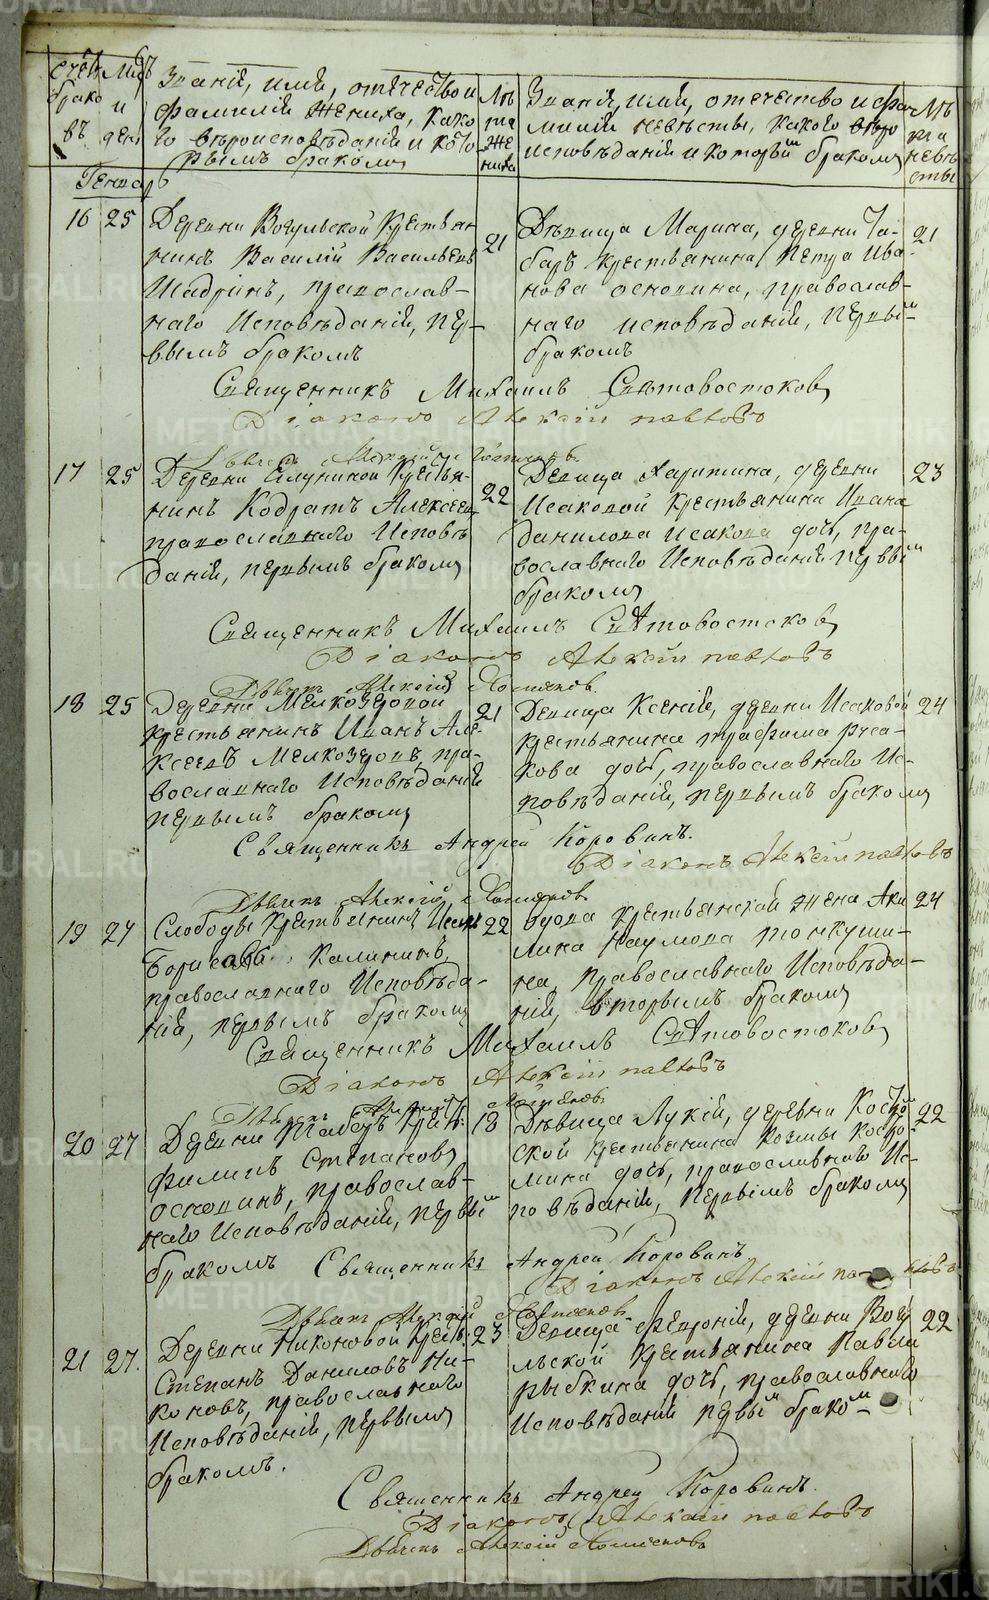 Счетъ браковъ
Мцъ и день
Званіе, имя, отечество и
фамилія жениха, како-
го вѣроисповѣданія и кото-
рымъ бракомъ
Лѣта жениха
Званіе, имя, отечество и фа-
милія невѣсты, какого вѣро
исповѣданія и которым бракомъ
Лѣта невѣсты
Генварь
16 25
Деревни Вогульской Крестьян
нинъ Василій Васильевъ
Шадринъ, православ-
наго Исповѣданія, пер-
вымъ бракомъ
21
Дѣвица Марина, деревни Та-
баръ крестьянина Петра Ива-
нова осконина, православ-
наго исповѣданія, первым
бракомъ
21
Священникъ Михаилъ Свѣтовостоковъ
Діаконъ Алексій
17 25
Деревни Крестья-
нинъ Кодратъ Алексеевъ
православнаго Исповѣ
данія, первымъ бракомъ
22
Девица Харитина, деревни
Исаковой крестьянина Ивана
Данилова Исакова дочь, пра-
вославнаго Исповѣданія первым
бракомъ
23
Священникъ Михаилъ Свѣтовостоковъ
Діаконъ Алексій
Алексій
18 25
Деревни Мелкозеровой
крестьянинъ Иванъ Але-
ксеевъ Мелкозеровъ, пра-
вославнаго Исповѣданія
первымъ бракомъ
21
Девица Ксенія, деревни Исаковой
крестьянина трафима Руса-
кова дочь, православнаго Ис-
повѣданія, первымъ бракомъ
24
Священникъ Андрей Коровинъ.
Діаконъ Алексій
Алексій
19 27
Слободы Крестьянинъ
Борисовъ Калининъ,
православнаго Исповѣда-
нія, первымъ бракомъ
22
Вдова крестьянской жена Аки
лина Наумова тонкуши-
на, православнаго Исповѣда-
нія, вторымъ бракомъ
24
Священникъ Михаилъ Свѣтовостоковъ
Діаконъ Алексій
20 27
Деревни Табаръ Крест.
Филипъ Степановъ
осконинъ, православ-
наго Исповѣданія, первым
бракомъ
18
Дѣвица Лукія, деревни
ской крестьянина Козмы
мина дочь, православнаго Ис-
повѣданія, первымъ бракомъ
22
Священникъ Андрей Коровинъ
Діаконъ Алексій
Алексій
21 27.
Деревни Никоновой Крест.
Степанъ Даниловъ Ни-
коновъ, православнаго
Исповѣданія, первымъ
бракомъ.
23
Девица Февронія, деревни Вогу
льской крестьянина Павла
Рыбкина дочь, православнаго
Исповѣданія первым браком
22
Священникъ Андрей Коровинъ.
Діаконъ Алексій
Алексій